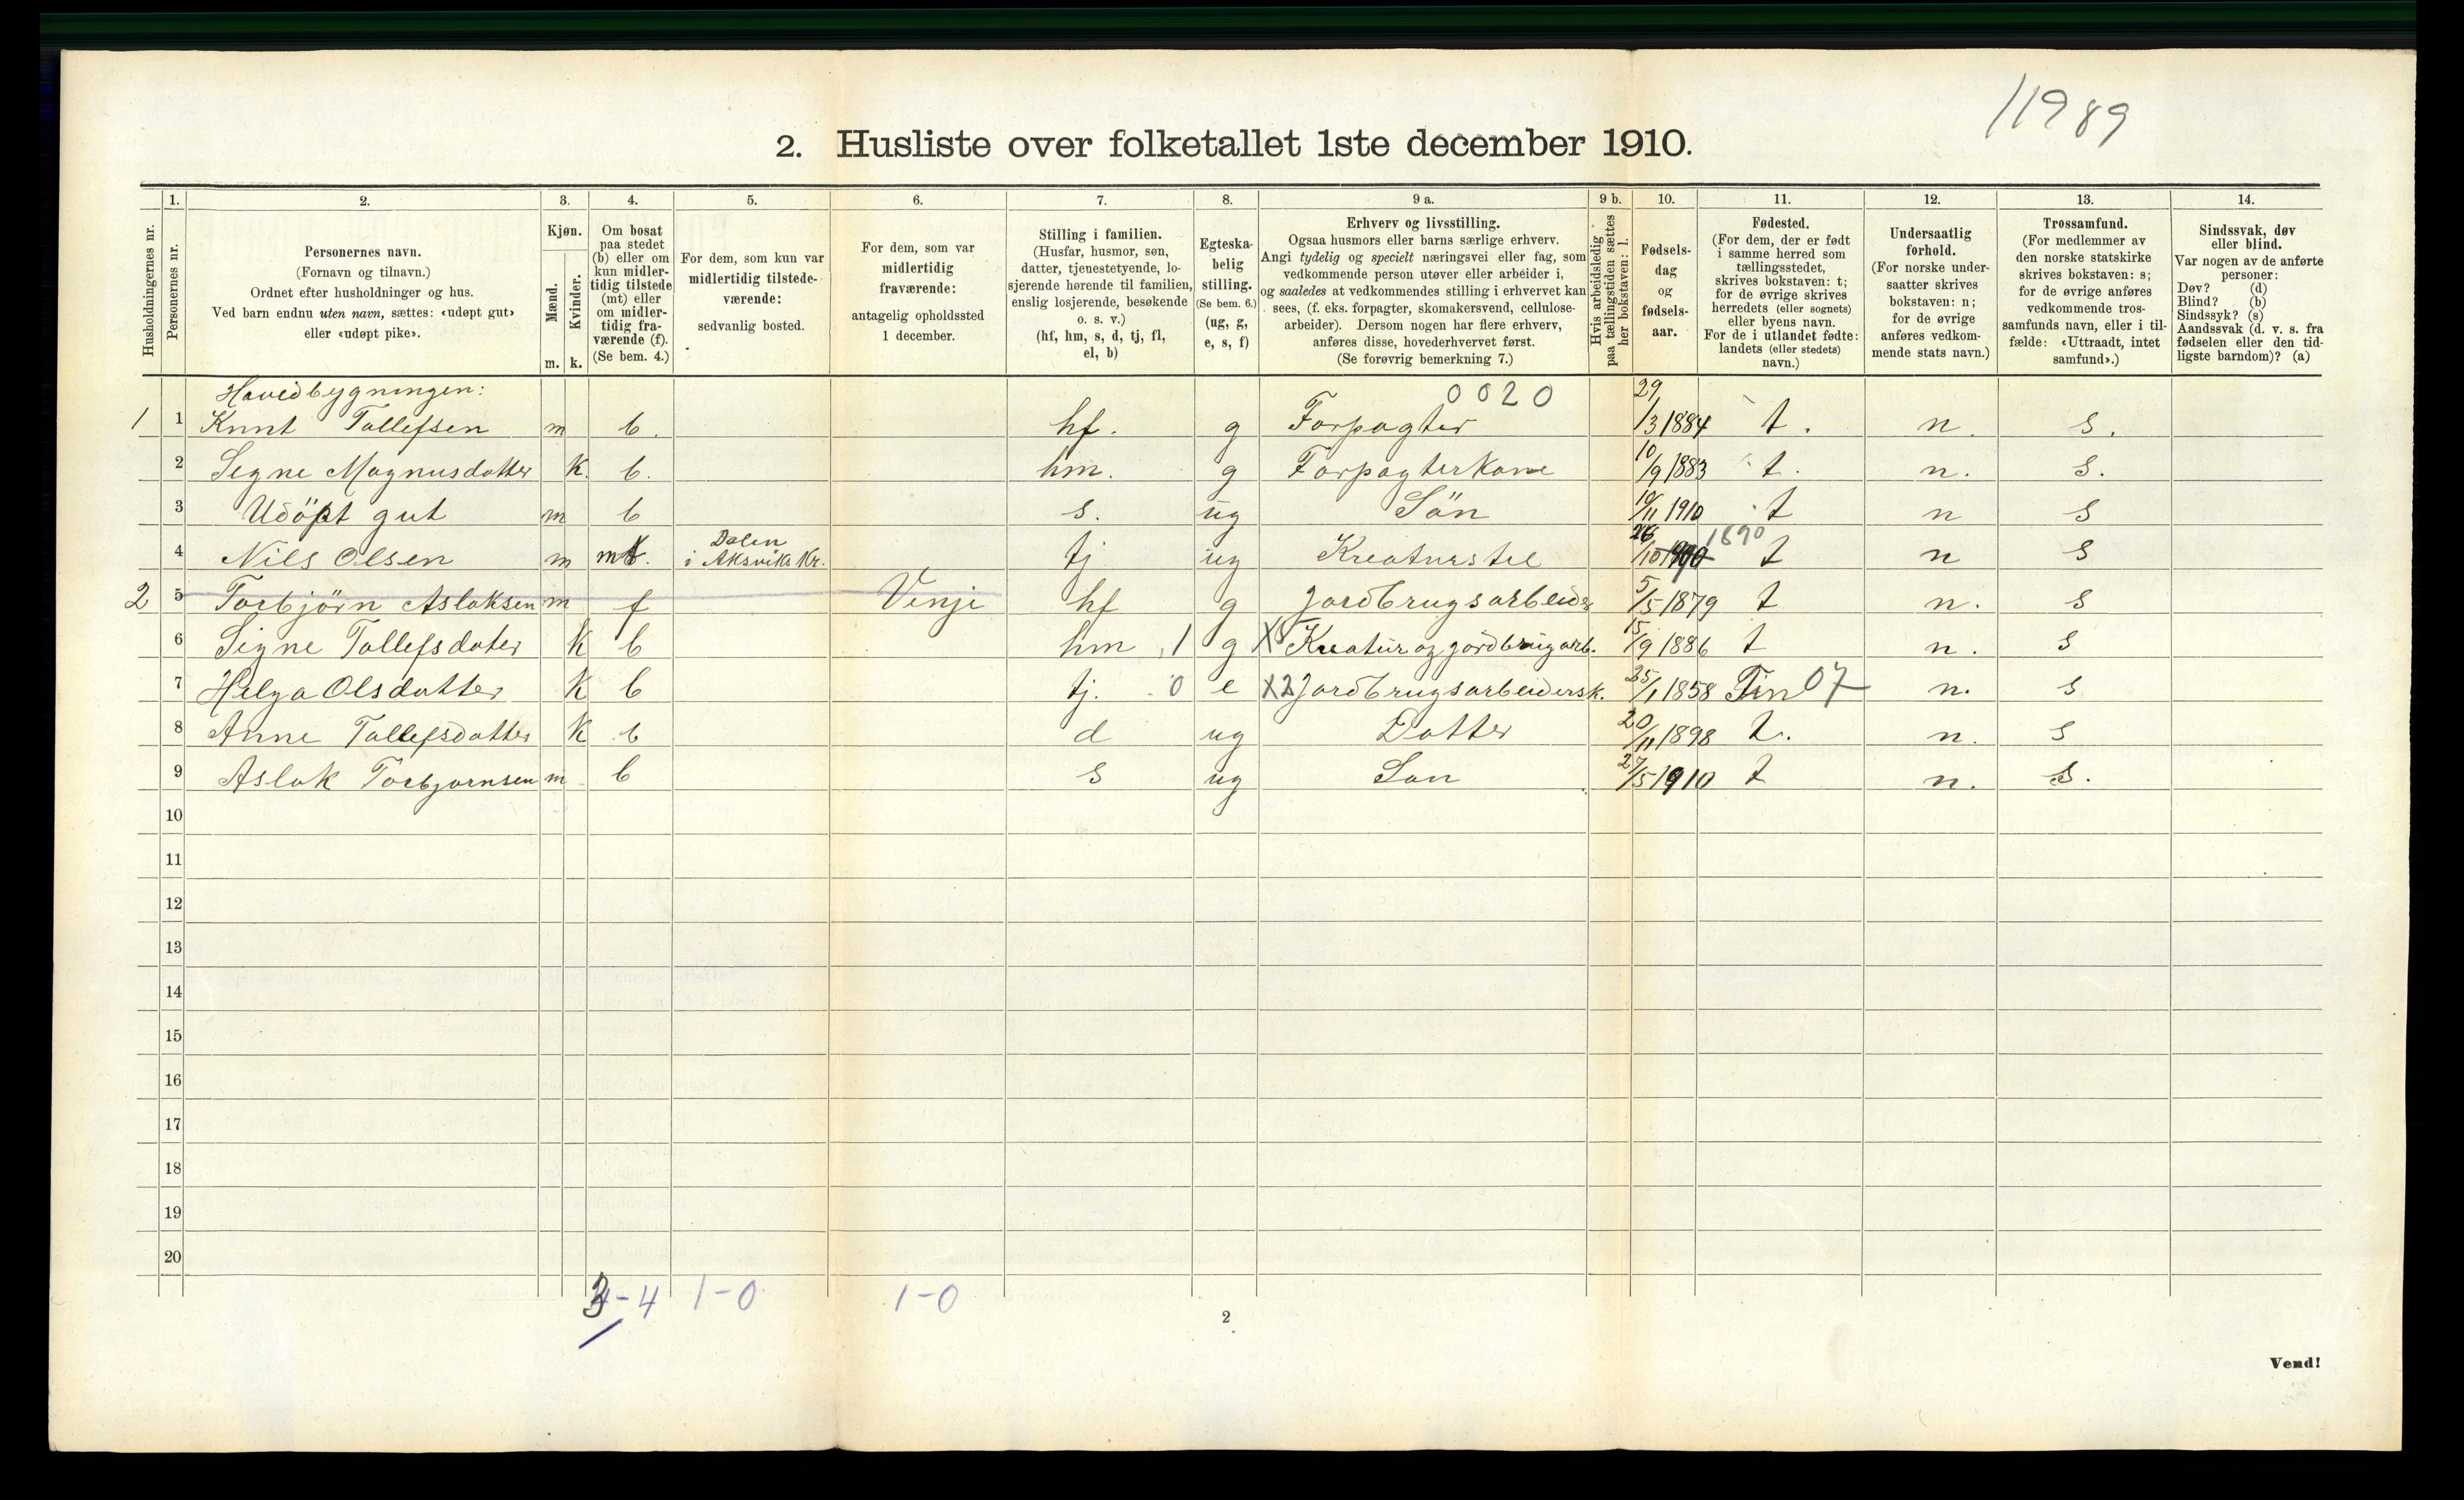 11989
2. Husliste over folketallet 1ste december 1910.
Husholdningernes nr.
1.
Personernes nr.
2.
Personernes navn.
(Fornavn og tilnavn.)
Ordnet efter husholdninger og hus.
Ved barn endnu uten navn, sættes: «udøpt gut»
eller «udøpt pike».
3.
Kjøn.
Mænd.
Kvinder.
m. k.
4.
Om bosat
paa stedet
(b) eller om
kun midler-
tidig tilstede
(mt) eller
om midler-
tidig fra-
værende (f).
(Se bem. 4.)
5.
For dem, som kun var
midlertidig tilstede-
værende:
sedvanlig bosted.
6.
For dem, som var
midlertidig
fraværende:
antagelig opholdssted
1 december.
7.
Stilling i familien.
(Husfar, husmor, søn,
datter, tjenestetyende, lo-
sjerende hørende til familien,
enslig losjerende, besøkende
o. s. v.)
(hf, hm, s, d, tj, fl,
el, b)
8.
Egteska-
belig
stilling.
(Se bem. 6.)
(ug, g,
e, s, f)
9 a.
Erhverv og livsstilling.
Ogsaa husmors eller barns særlige erhverv.
Angi tydelig og specielt næringsvei eller fag, som
vedkommende person utøver eller arbeider i,
og saaledes at vedkommendes stilling i erhvervet kan
sees, (f. eks. forpagter, skomakersvend, cellulose-
arbeider). Dersom nogen har flere erhverv,
anføres disse, hovederhvervet først.
(Se forøvrig bemerkning 7.)
9 b.
Hvis arbeidsledig
paa tællingstiden sættes
her bokstaven: l.
10.
Fødsels-
dag
og
fødsels-
aar.
11.
Fødested.
(For dem, der er født
i samme herred som
tællingsstedet,
skrives bokstaven: t;
for de øvrige skrives
herredets (eller sognets)
eller byens navn.
For de i utlandet fødte:
landets (eller stedets)
navn.)
12.
Undersaatlig
forhold.
(For norske under-
saatter skrives
bokstaven: n;
for de øvrige
anføres vedkom-
mende stats navn.)
13.
Trossamfund.
(For medlemmer av
den norske statskirke
skrives bokstaven: s;
for de øvrige anføres
vedkommende tros-
samfunds navn, eller i til-
fælde: «Uttraadt, intet
samfund».)
14.
Sindssvak, døv
eller blind.
Var nogen av de anførte
personer:
Døv? (d)
Blind? (b)
Sindssyk? (s)
Aandssvak (d. v. s. fra
fødselen eller den tid-
ligste barndom)? (a)
Hovedbygningen: 0020
1 1 Knut Tallefsen m b. hf. g Forpagter 29/3 1884 t. n. s.
2 Segne Magnusdatter k. b. hm. g Forpagterkone 10/9 1883 t. n. s.
3 Udöpt gut m b s. ug Sön 10/11 1910 t n s
4 Nils Olsen m mt. Dalen i Aksviks Kr. tj ug Kreaturstel 26/10 1890 t n s
2 5 Torbjörn Aslaksen m f Venje hf g Jordbrugsarbeider 5/5 1879 t n. s
6 Signe Tallefsdater k b hm 1 g X Kreatur og jordbrugarb. 15/9 1886 t n. s
7 Helga Olsdatter k b tj. 0 e X2 Jordbrugsarbeidersk. 25/1 1858 Tin 07 n. s
8 Anne Tallefsdatter k b d ug Datter 20/11 1898 t. n. s
9 Aslak Torbjørnsen m b s ug Søn 27/5 1910 t n. s.
10
11
12
13
14
15
16
17
18
19
20
3-4 1-0 1-0
2
Vend!